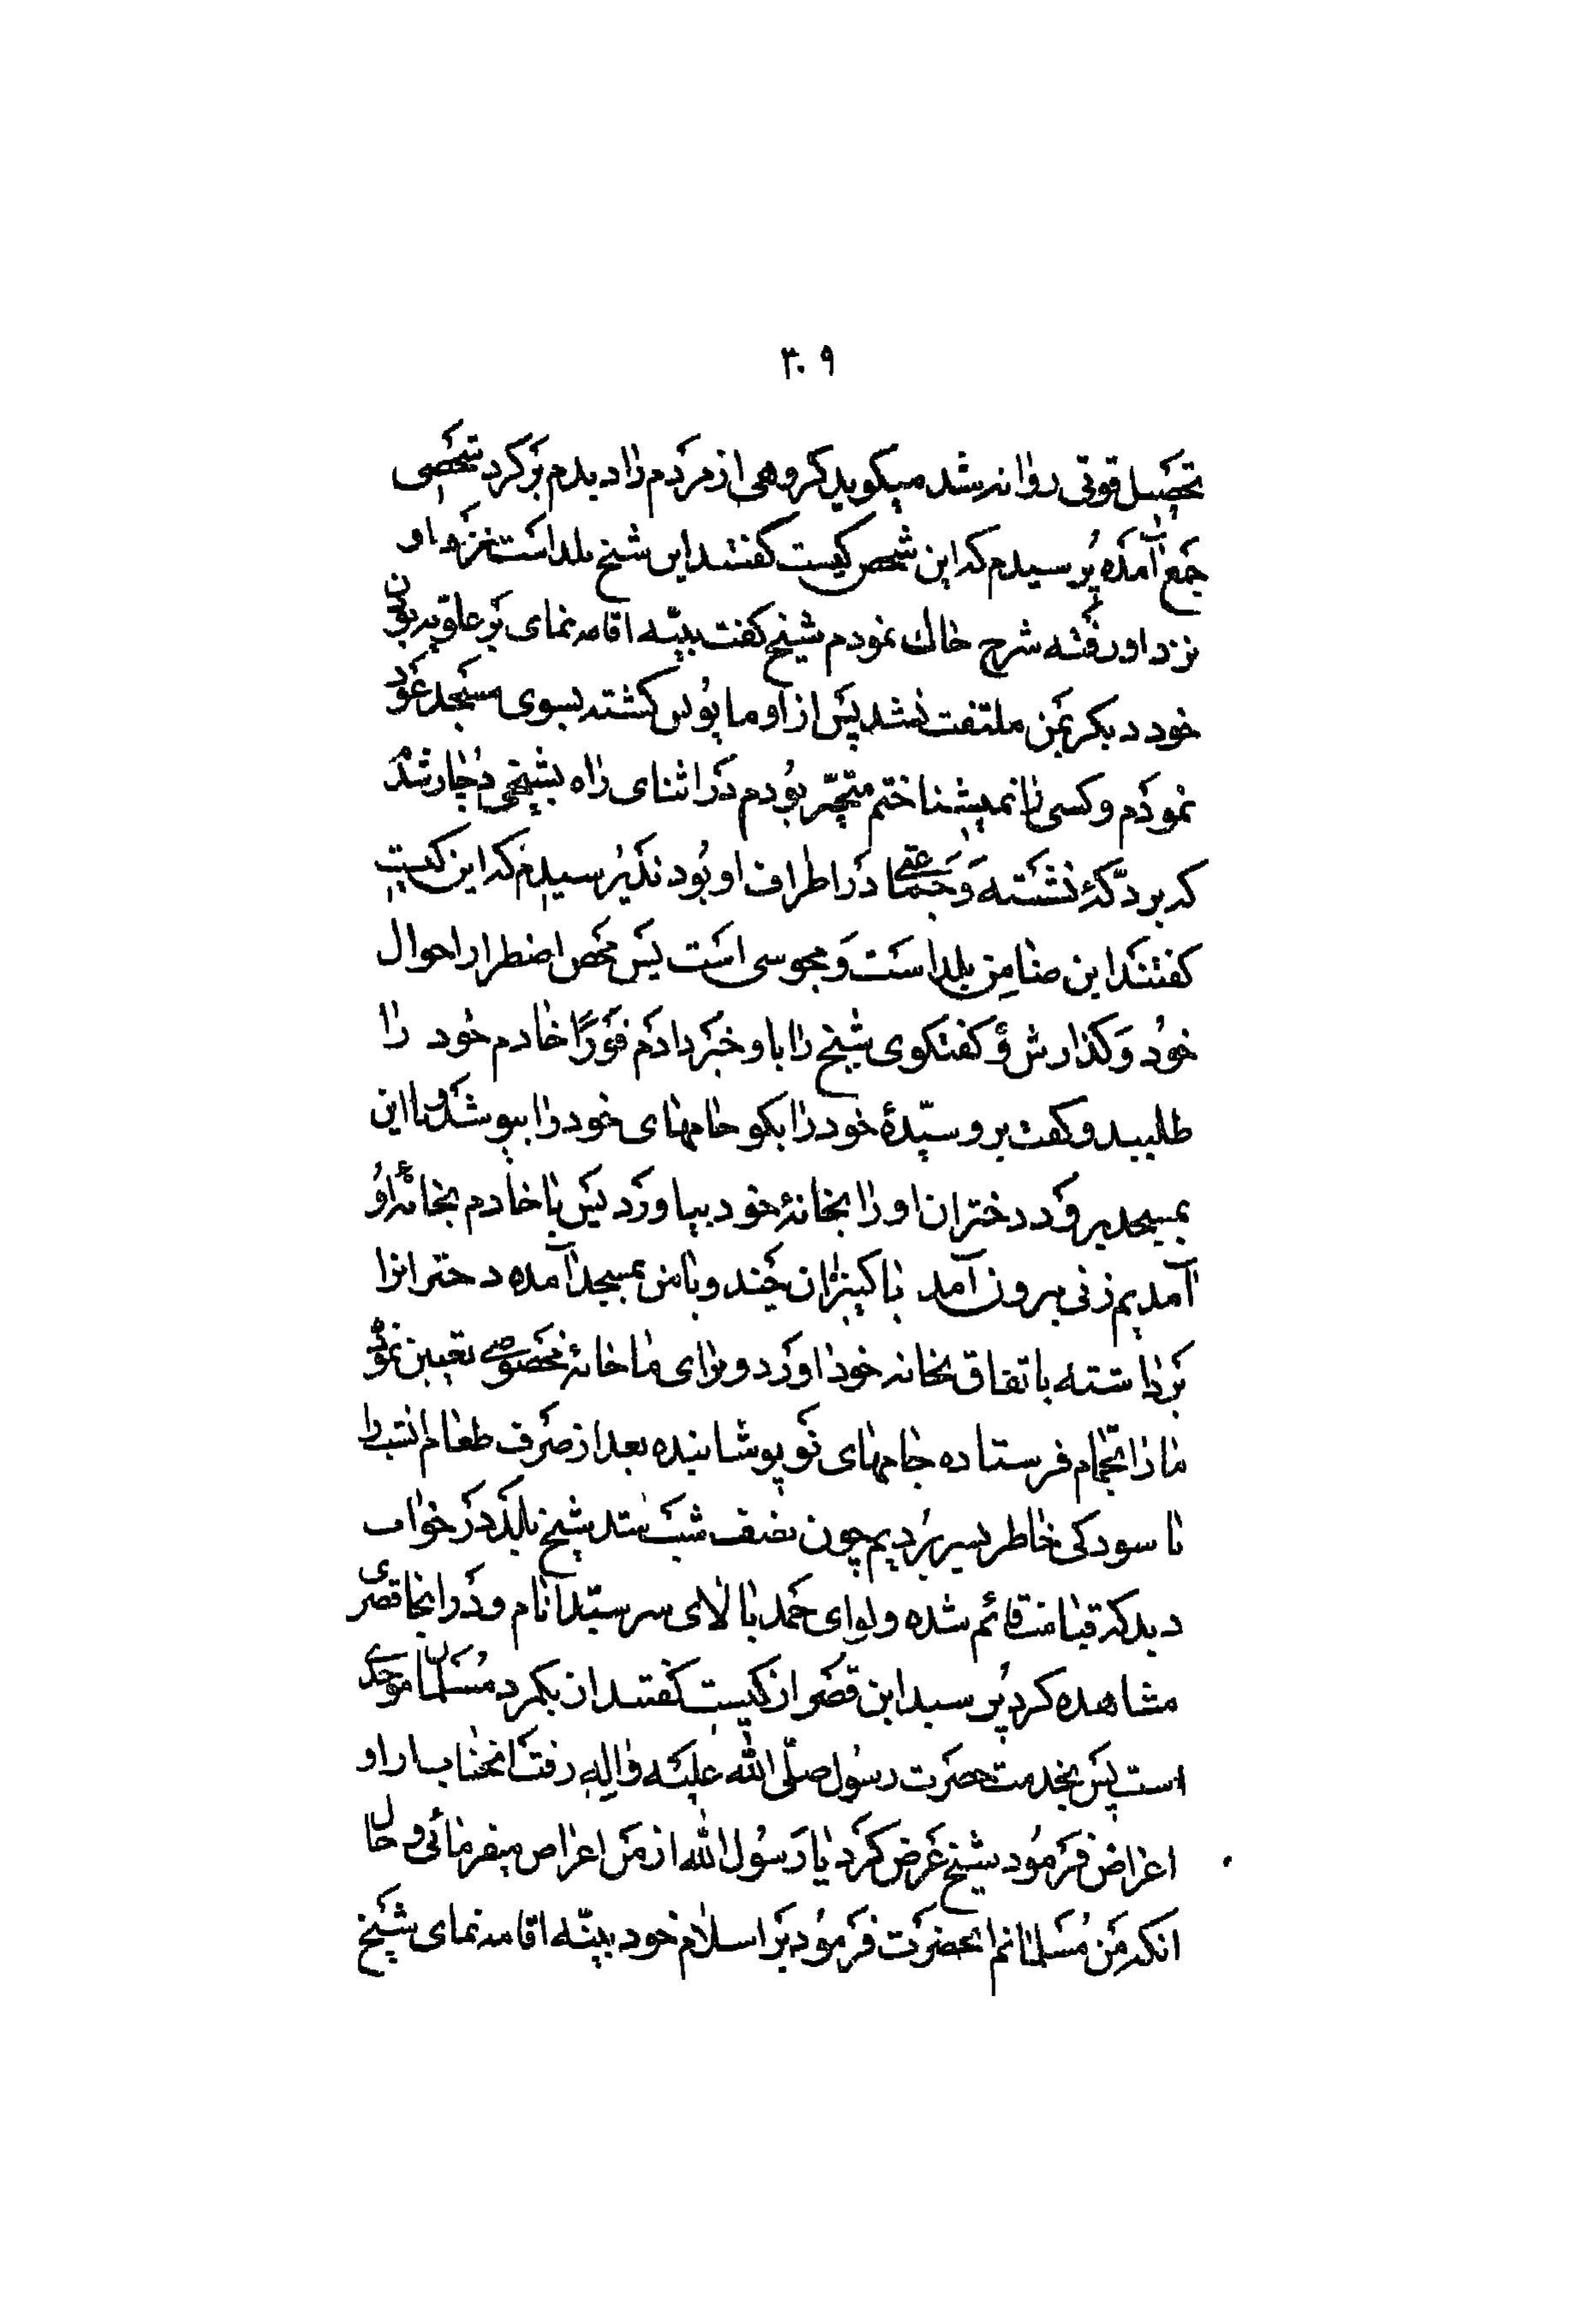 ۳۰۹
تحصیل قوتی روانه شد میکوید کروهی از مردم را دیدم بر کرد شخصی
جمع آمده پرسیدم که این شخص کیست کفتند این شیخ بلد است من نزد او
نزد او رفته شرح حال نمودم شیخ کفت بینه اقامه نمای بر علویه بودن
خود دیکر بمن ملتفت نشد پس از او مایوس کشته بسوی مسجد عود
نمودم و کسی را نمیشناختم متحیر بودم در اثنای راه بشیخی دچار شدم
که بر دکهٔ نشسته و جماعتی در اطراف او بودند پرسیدم که این کیست
کفتند این ضامن بلد است و مجوسی است پس محض اضطرار احوال
خود و کذارش و کفتکوی شیخ را باو خبر دادم فورًا خادم خود را
طلبید و کفت برو سیّدهٔ خود را بکو جامهای خود را بپوشد و با این
بمسجد برود دختران او را بخانهٔ خود بیاورد پس با خادم بخانهٔ او
آمدیم زنی بیرون آمد با کنیزان چند و با من بمسجد آمده دخترانرا
برداشته باتفاق بخانه خود اورد و برای ما خانهٔ مخصوصی تعیین نموده
ما را بحمام فرستاده جامهای نو پوشانیده بعد از صرف طعام انشب را
باسودکی خاطر بسر بردیم چون نصف شب شد شیخ بلد در خواب
دید که قیامت قائم شده و لوای حمد بالای سر سیّد انام و در انجا قصری
مشاهده کرد پرسید این قصر از کیست کفتند از یکمرد مسلمان موحدی
است پس بخدمت حضرت رسول صلّی الله علیه واله رفت انجناب از او
اعراض فرمود شیخ عرض کرد یا رسول الله از من اعراض میفرمائی و حال
انکه من مسلمانم انحضرت فرمود بر اسلام خود بینه اقامه نمای شیخ